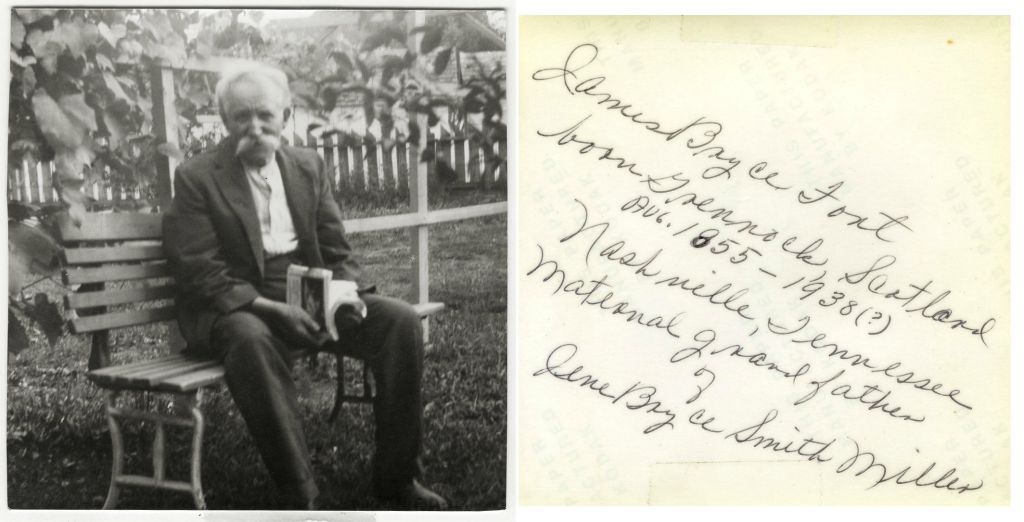 James Bryce Font
born Grennock, Scotland
Aug. 1855 - 1938(?)
Nashville, Tennessee
Maternal grand father
of
Jene Bryce Smith Miller